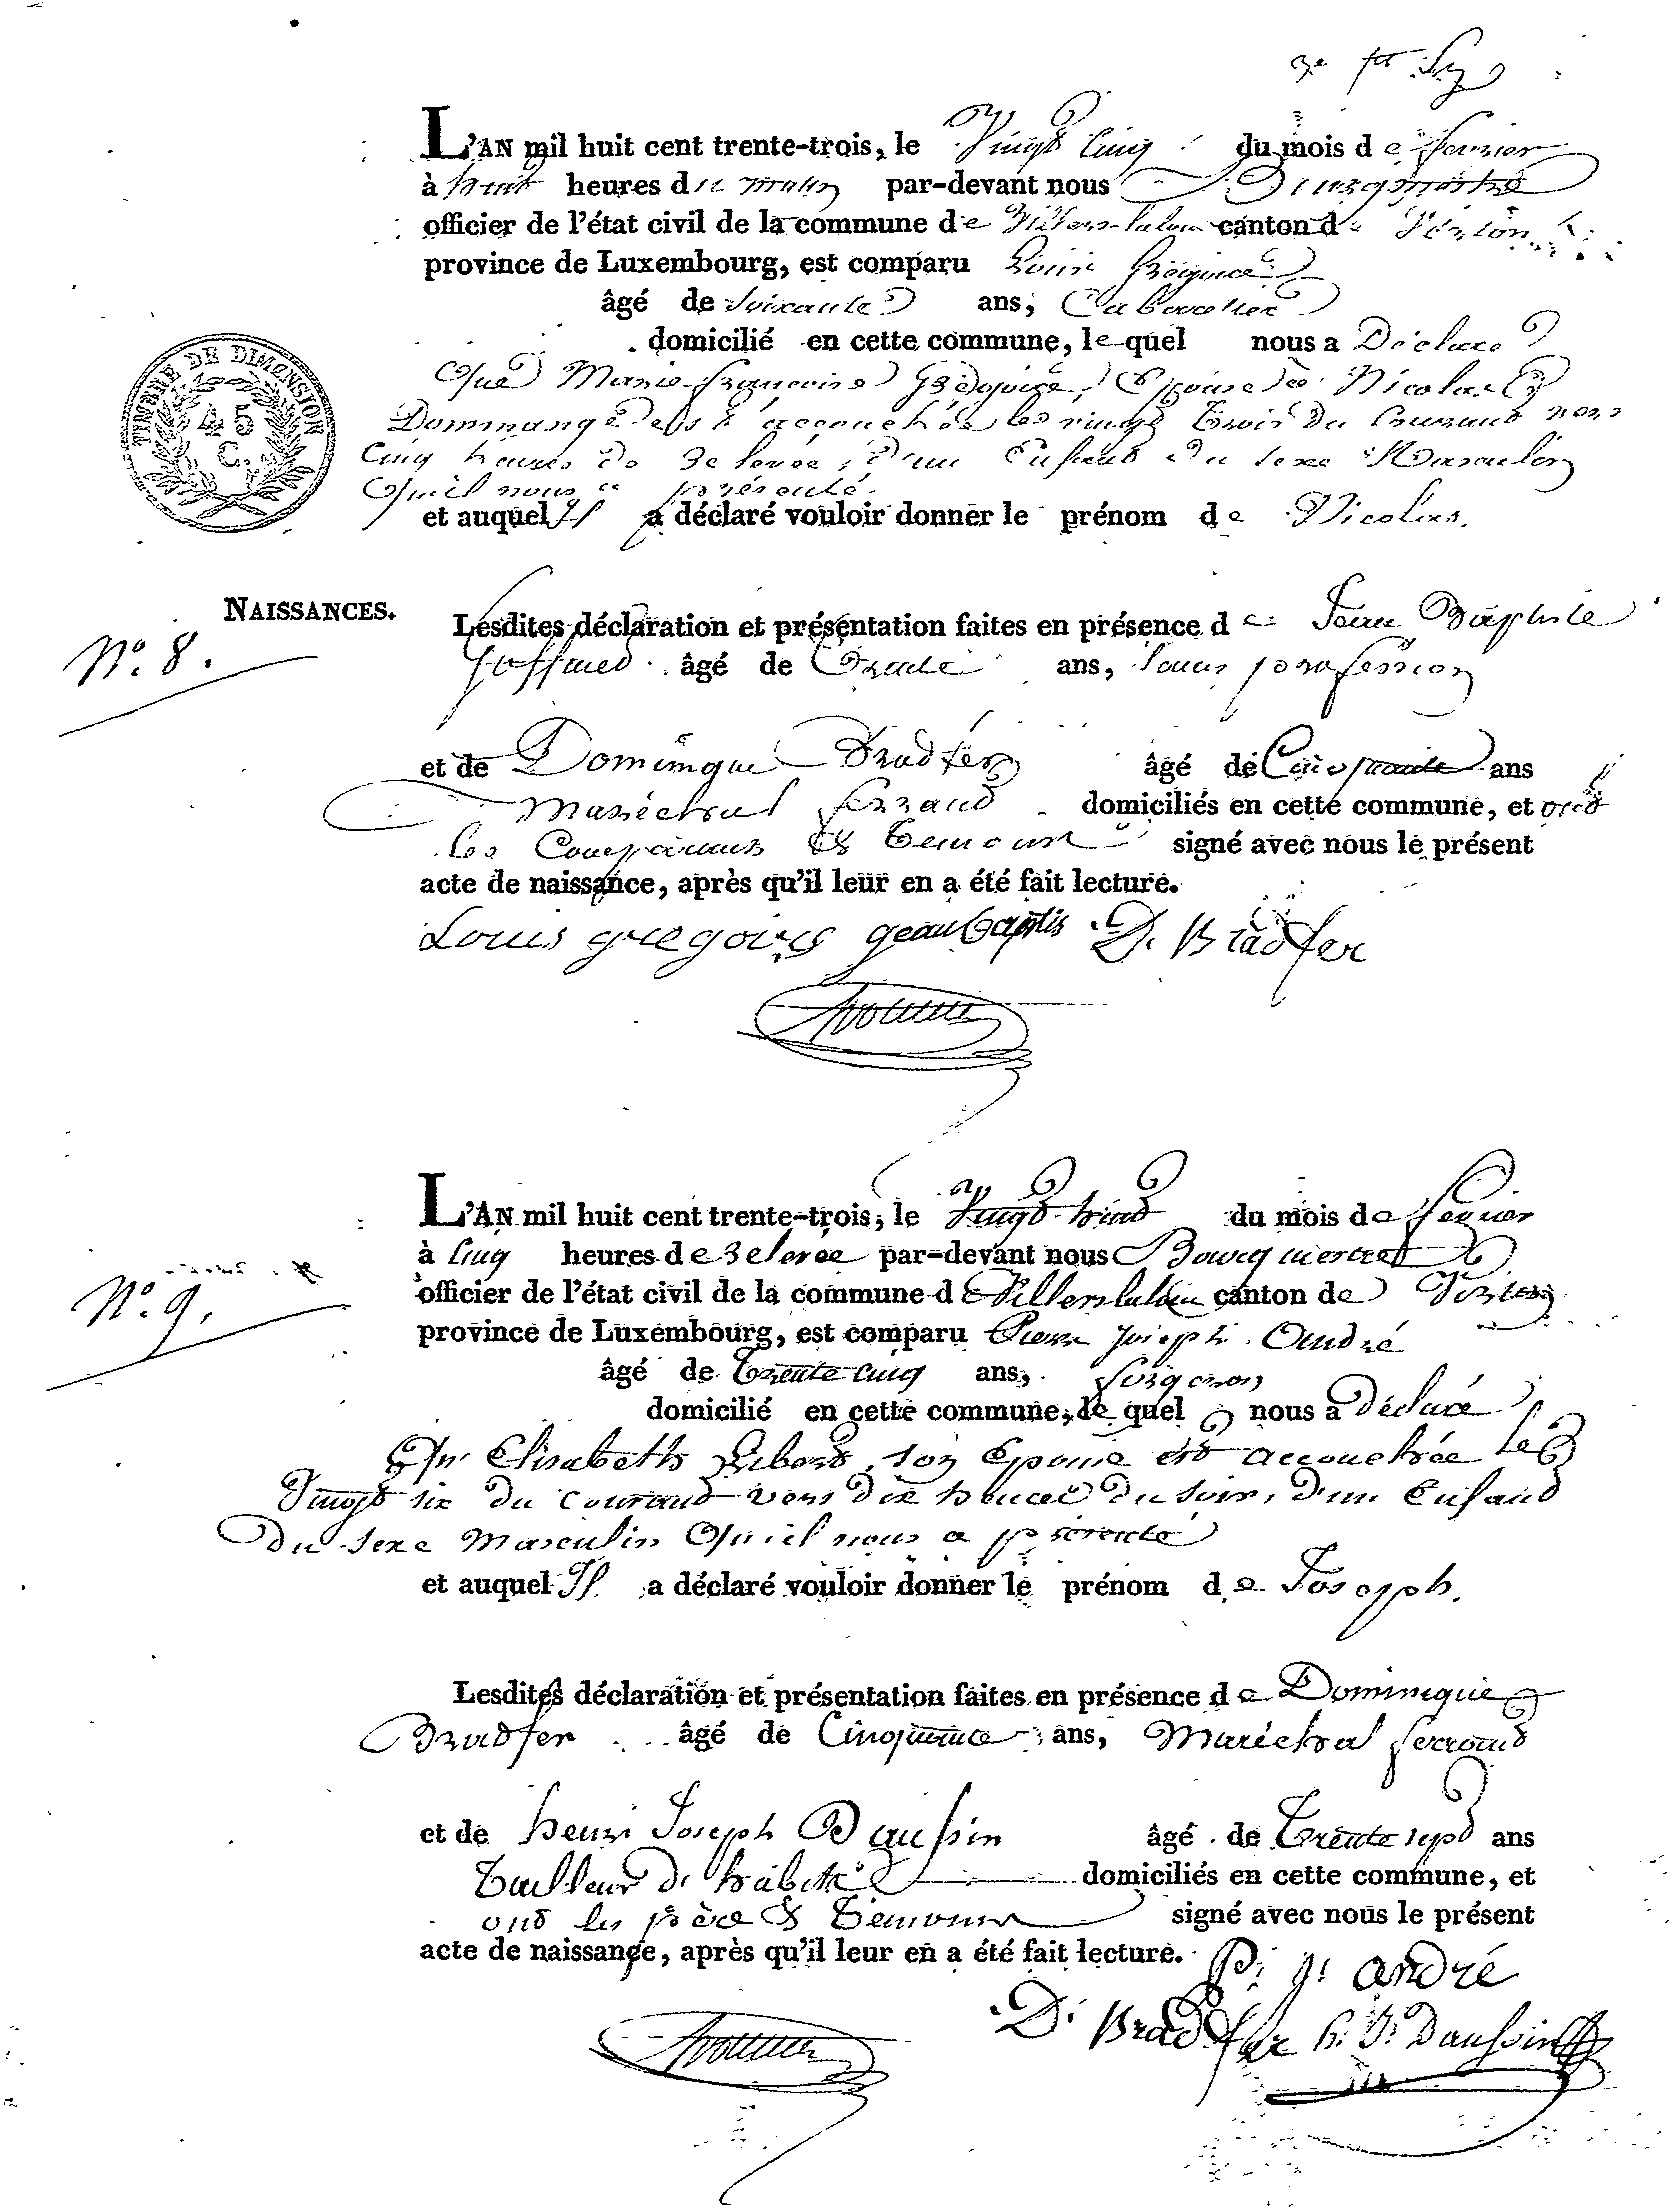 3e ft
L'AN mil huit cent trente-trois, le Vingt Cinq du mois de fevrier
à huit heures du matin par-devant nous Bourgmestre
officier de l'état civil de la commune de Villers-laloue canton de Virton
province de Luxembourg, est comparu Louis Grégoire
âgé de Soixante ans, Cabaretier
domicilié en cette commune, lequel nous a Déclaré
Que Marie françoise Grégoire, Epouse de Nicolas
Dommange est accouchée le vingt Trois Du Courant vers
Cinq heures de relevée, d'un Enfant Du sexe Masculin
Qu'il nous a présenté
et auquel Il a déclaré vouloir donner le prénom de Nicolas.
TIMBRE DE DIMENSION
45
C.
NAISSANCES.
N°. 8.
Lesdites déclaration et présentation faites en présence de Jean Baptiste
Goffinet âgé de Trente ans, sans profession
et de Dominique Bradfer âgé de Cinquante ans
Maréchal ferrand domiciliés en cette commune, et ont
les Comparant et Temoins signé avec nous le présent
acte de naissance, après qu'il leur en a été fait lecture.
Louis gregoire geanbaptis D. Bradfer
L'AN mil huit cent trente-trois, le Vingt huit du mois de fevrier
à Cinq heures de relevée par-devant nous Bourgmestre
N°. 9.
officier de l'état civil de la commune de Villerslaloue canton de Virton
province de Luxembourg, est comparu Pierre Joseph André
âgé de Trente cinq ans, forgeron
domicilié en cette commune, le quel nous a Déclaré
Qu' Elisabeth son Epouse est accouchée le
Vingt six du Courant vers Dix heures du soir, d'un Enfant
Du sexe Masculin Qu'il nous a présenté
et auquel Il a déclaré vouloir donner le prénom de Joseph.
Lesdites déclaration et présentation faites en présence de Dominique
Bradfer âgé de Cinquante ans, Maréchal ferrand
et de henri Joseph Daussin âgé de Trente sept ans
Tailleur D'habits domiciliés en cette commune, et
ont les père et Temoins signé avec nous le présent
acte de naissance, après qu'il leur en a été fait lecture.
P. J. andré
D. Bradfer h. J. Daussin